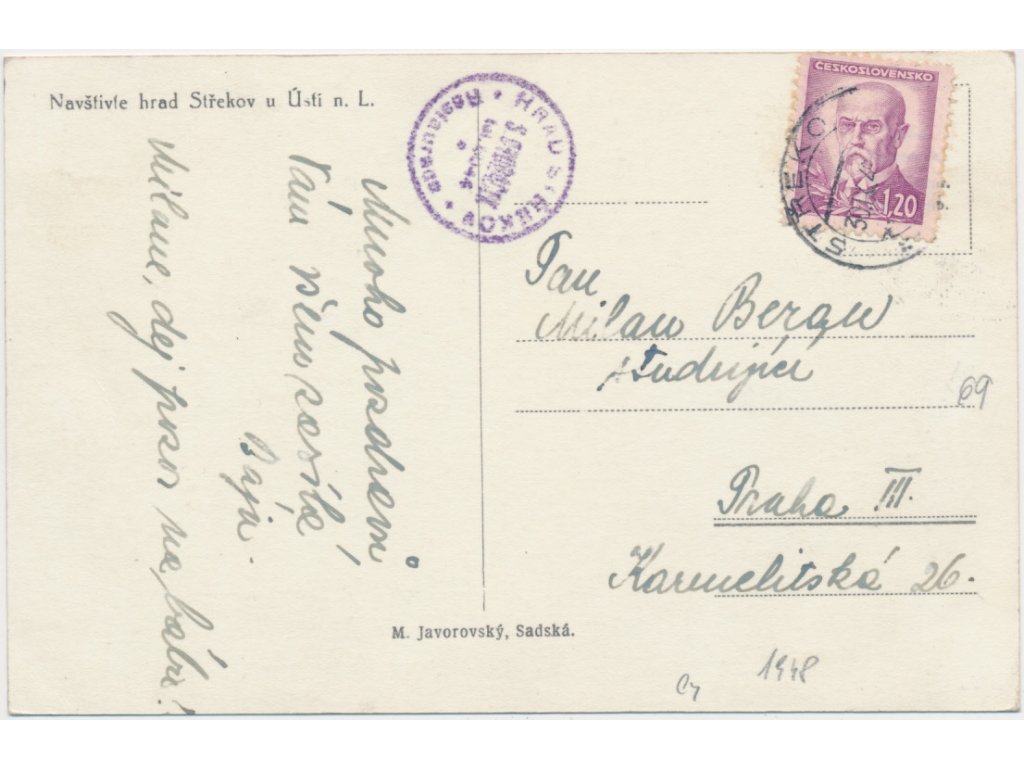 Navštivte hrad Střekov u Ústí n. L.
Mnoho pozdravů
Vám všem zasílá
Milane, dej pozor na bábu!
HRAD STŘEKOV • Restaurace •
ČESKOSLOVENSKO
1,20
STŘEKO
Pan
Milan Bergu
studující
69
Praha III.
Karmelitská 26.
M. Javorovský, Sadská.
1948